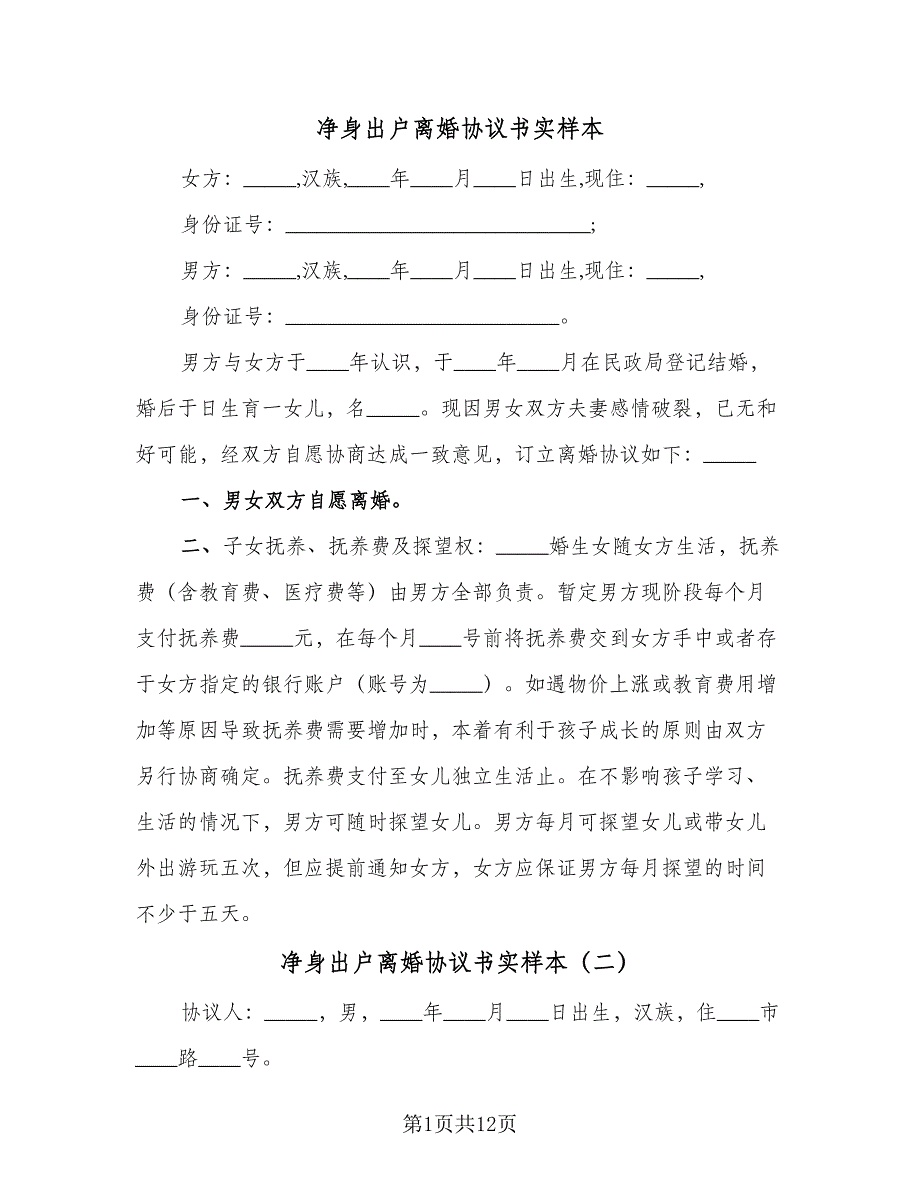 净身出户离婚协议书实样本
女方：_____,汉族,____年____月____日出生,现住：_____,
身份证号：_____________________________;
男方：_____,汉族,____年____月____日出生,现住：_____,
身份证号：__________________________。
男方与女方于____年认识，于____年____月在民政局登记结婚，
婚后于日生育一女儿，名_____。现因男女双方夫妻感情破裂，已无和
好可能，经双方自愿协商达成一致意见，订立离婚协议如下：_____
一、男女双方自愿离婚。
二、子女抚养、抚养费及探望权：_____婚生女随女方生活，抚养
费（含教育费、医疗费等）由男方全部负责。暂定男方现阶段每个月
支付抚养费_____元，在每个月____号前将抚养费交到女方手中或者存
于女方指定的银行账户（账号为_____）。如遇物价上涨或教育费用增
加等原因导致抚养费需要增加时，本着有利于孩子成长的原则由双方
另行协商确定。抚养费支付至女儿独立生活止。在不影响孩子学习、
生活的情况下，男方可随时探望女儿。男方每月可探望女儿或带女儿
外出游玩五次，但应提前通知女方，女方应保证男方每月探望的时间
不少于五天。
净身出户离婚协议书实样本（二）
协议人：_____，男，____年____月____日出生，汉族，住____市
____路____号。
第1页共12页